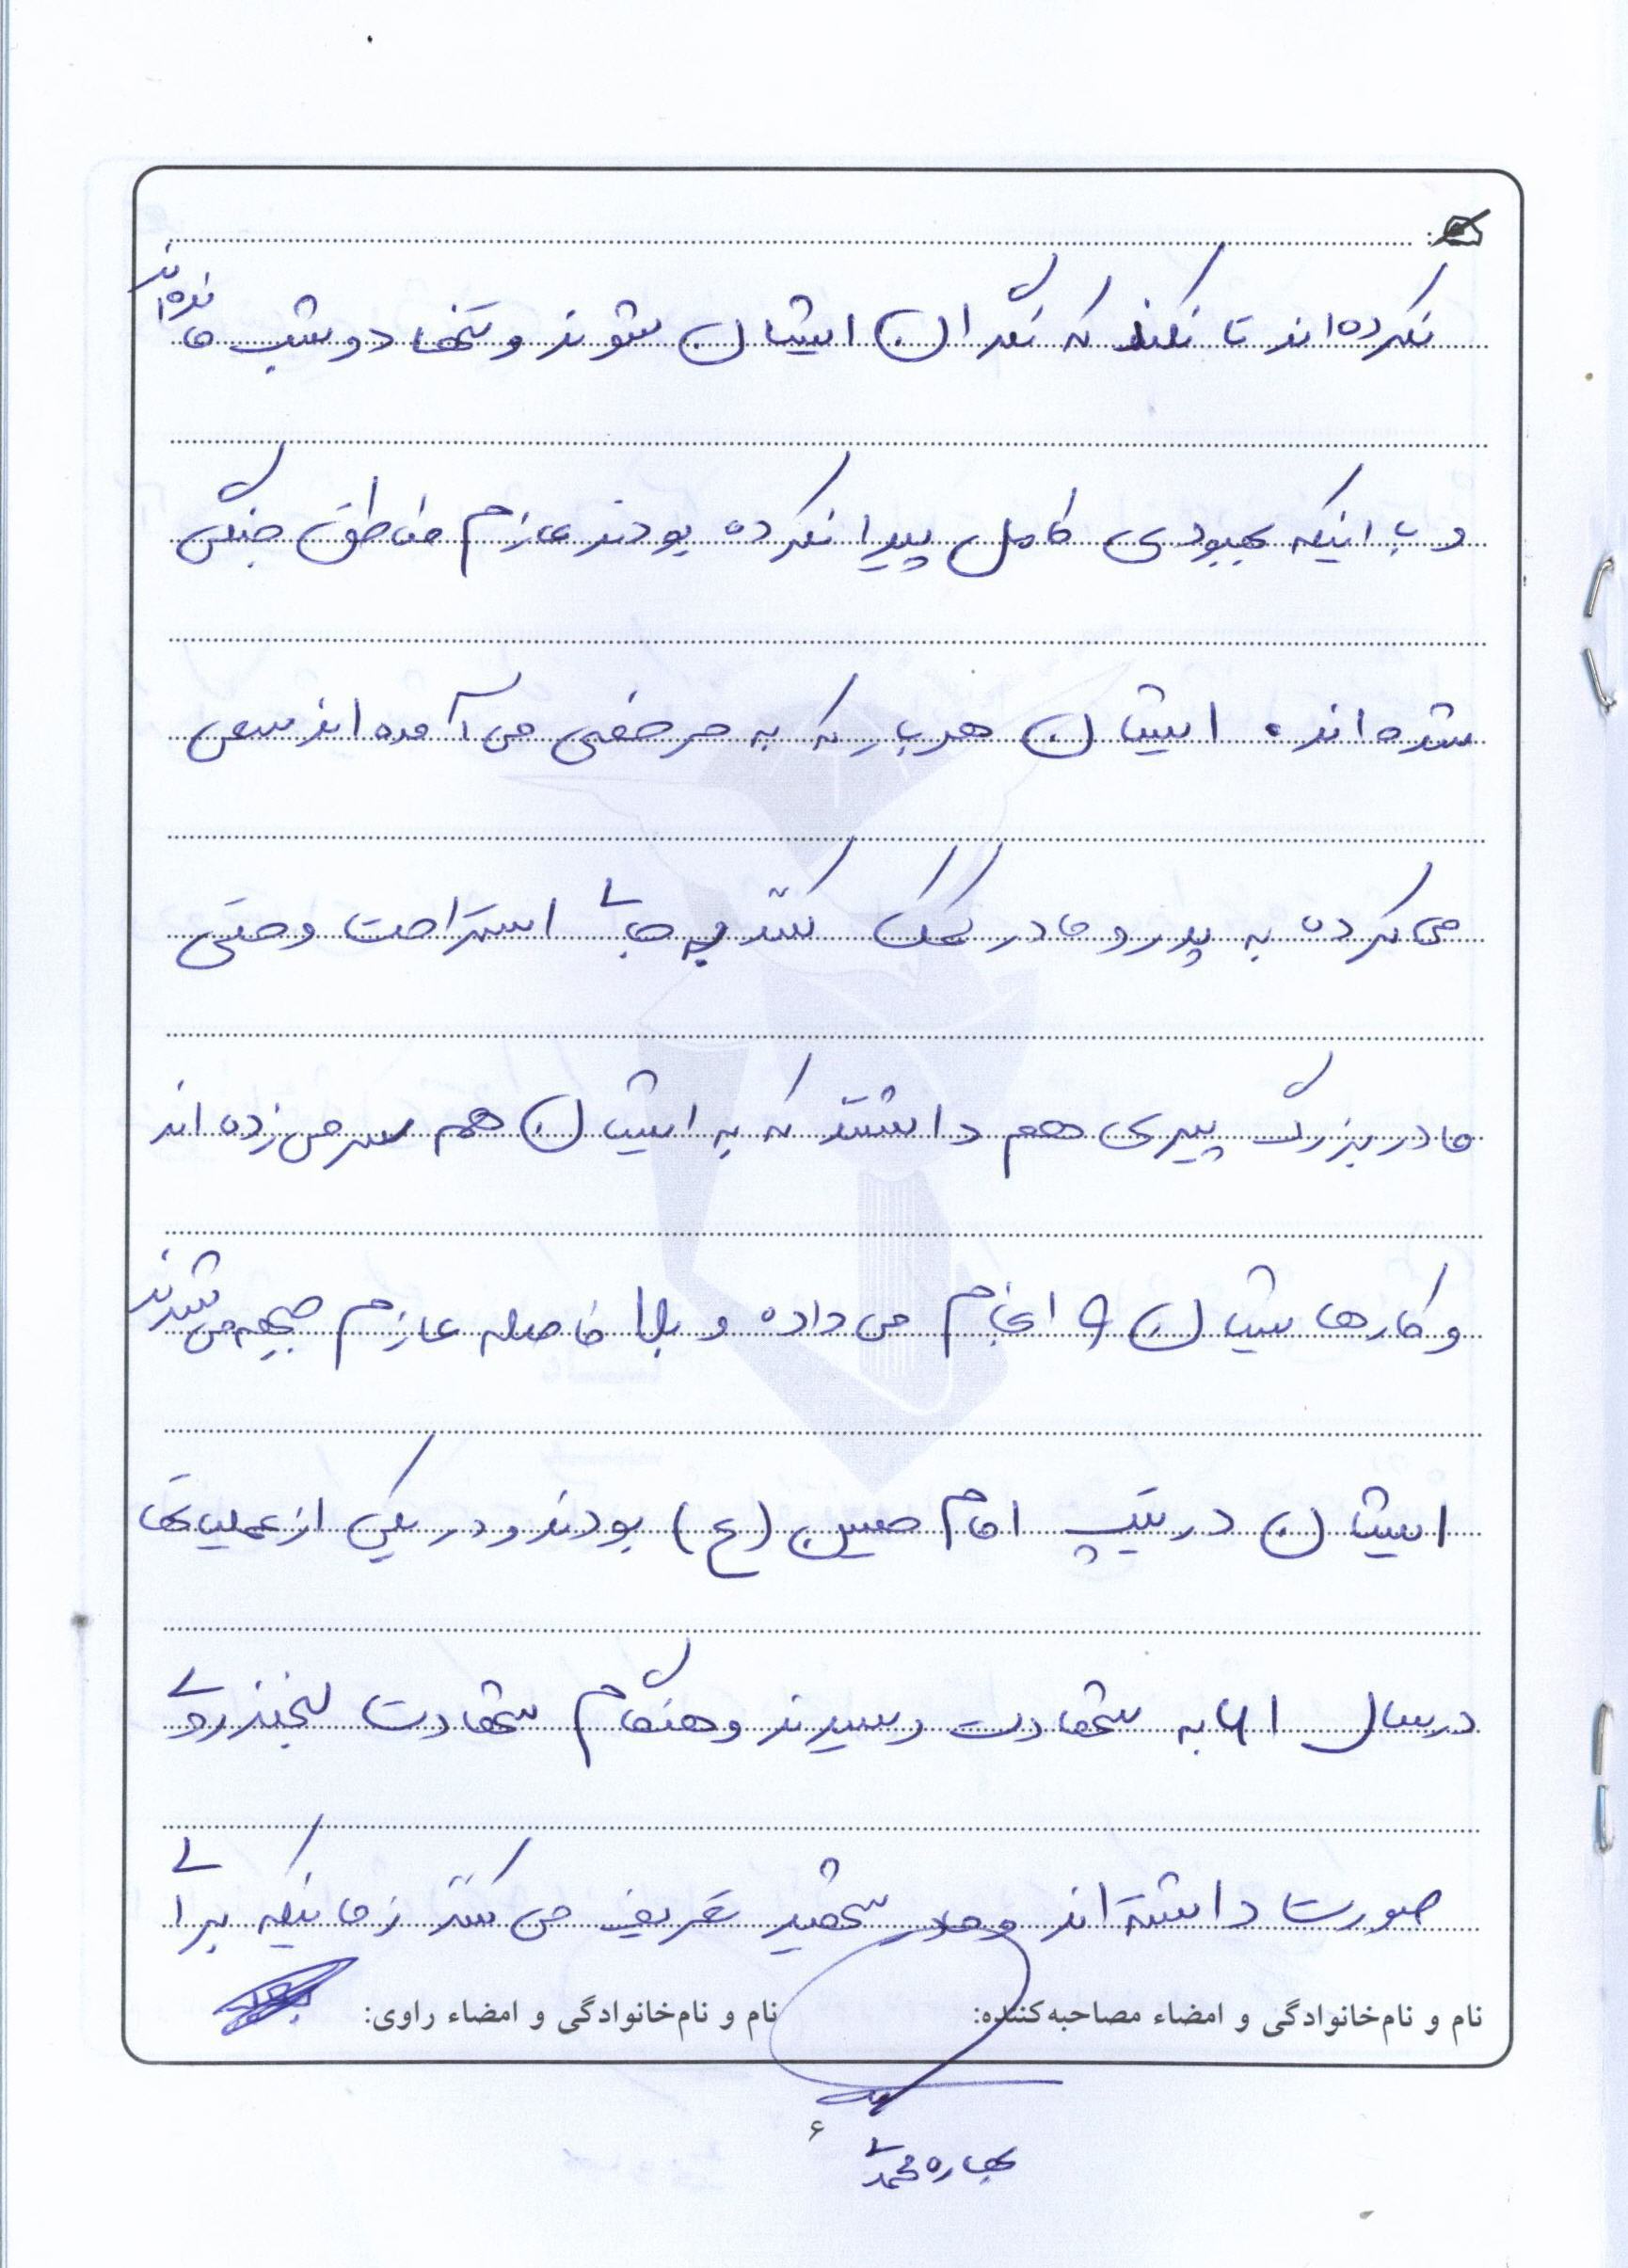 نکرده اند تا نکند که نگران ایشان شوند و تنها دو شب مانده اند
و با اینکه بهبودی کامل پیدا نکرده بودند عازم مناطق جنگی
شده اند. ایشان هر بار که به مرخصی می آمده اند سعی
می کرده به پدر و مادر کمک کنند و به جای استراحت و حتی
مادربزرگ پیری هم داشتند که به ایشان هم سر می زده اند
و کارهایشان را انجام می داده و بلا فاصله عازم جبهه می شدند
ایشان در تیپ امام حسین (ع) بودند و در یکی از عملیاتها
در سال ۶۱ به شهادت رسیدند و هنگام شهادت لبخند روی
صورت داشته اند و مادر شهید تعریف می کنند زمانیکه برای
نام و نام‌خانوادگی و امضاء مصاحبه‌کننده:
نام و نام‌خانوادگی و امضاء راوی:
۶
بهاره محمدی